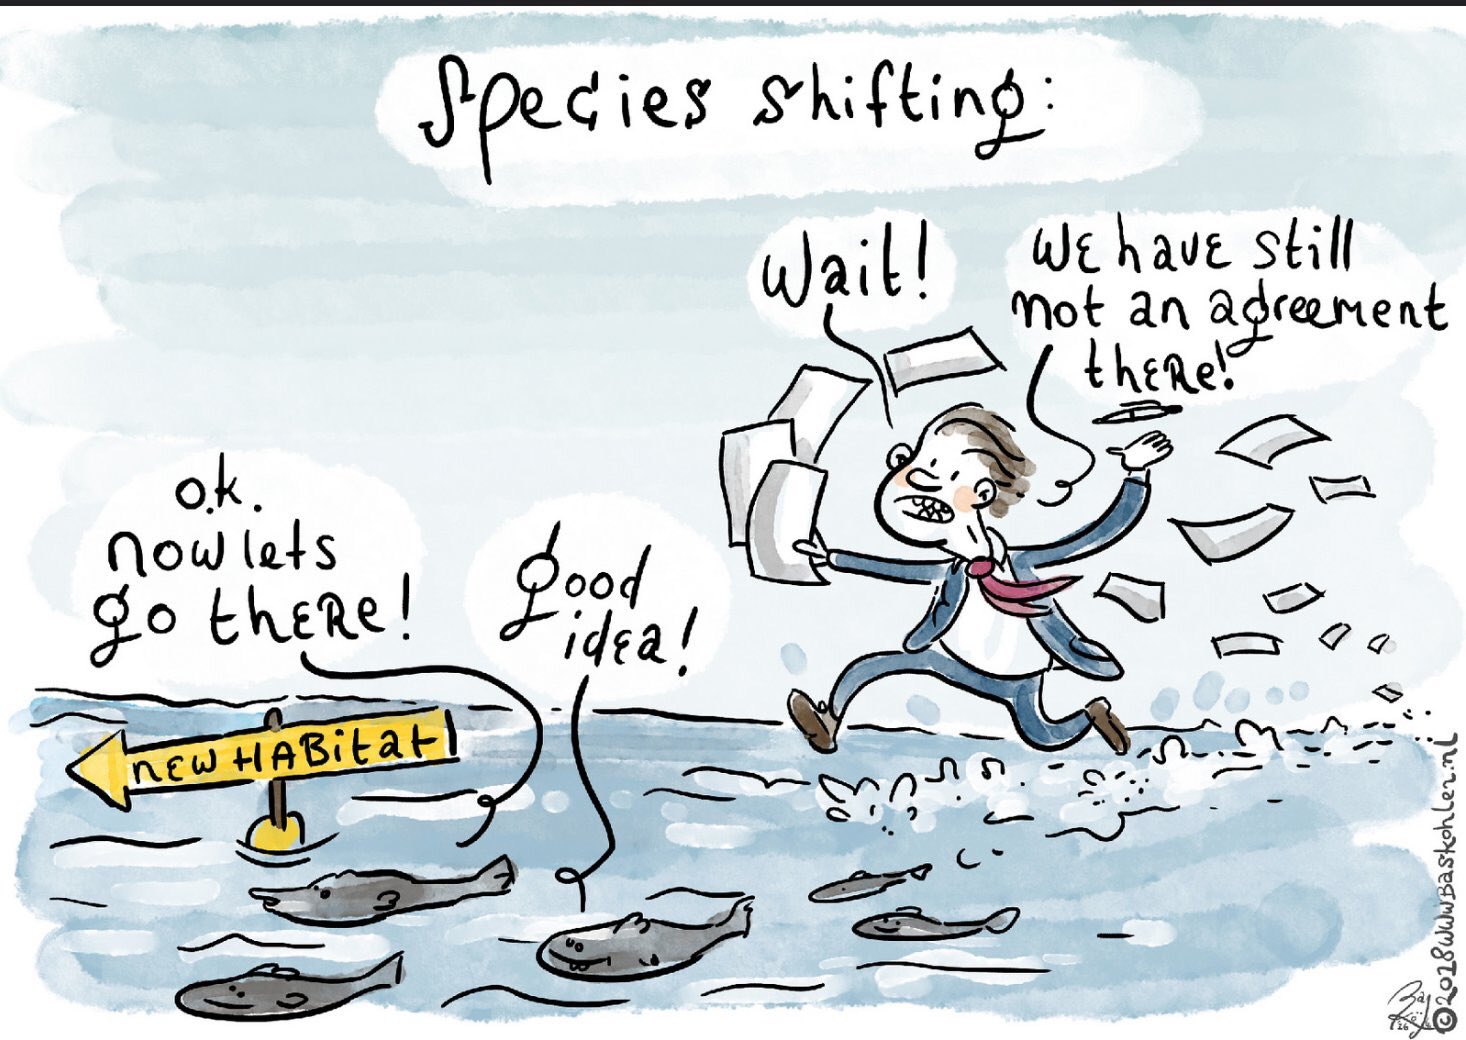 Species shifting:
Wait!
We have still
not an agreement
there!
o.k.
now lets
go there!
good
idea!
new HABitat
©2028WWW.BASKOHLER.nl